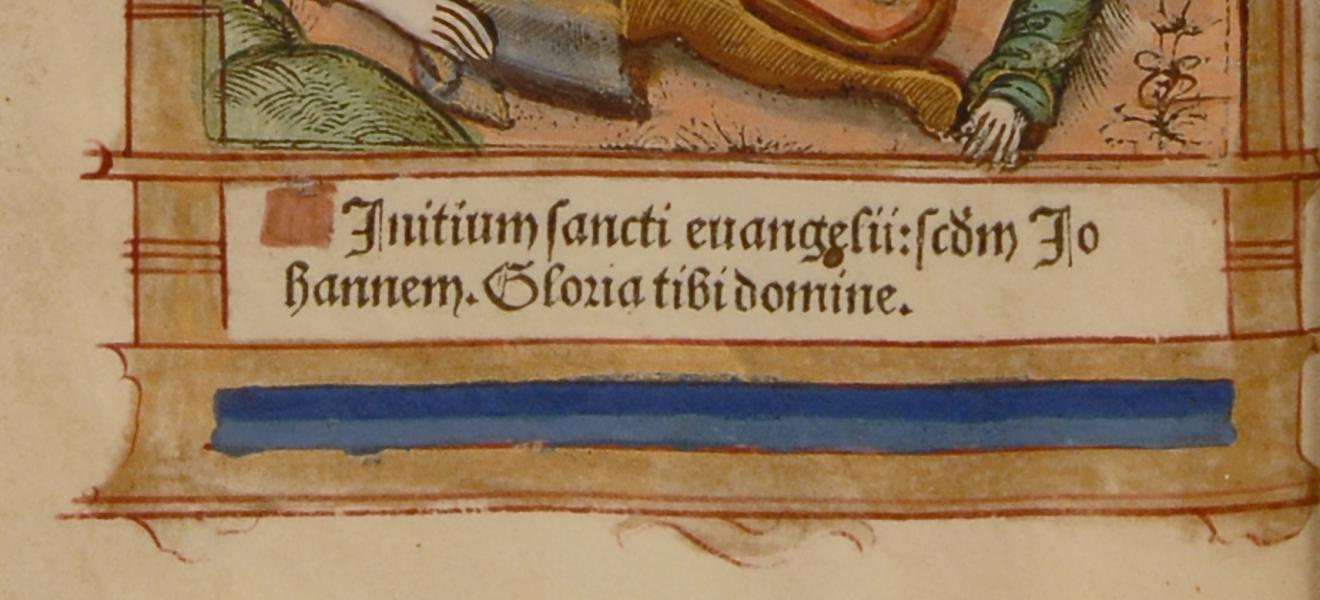 Initium sancti euangelii: scdm Jo
hannem. Gloria tibi domine.